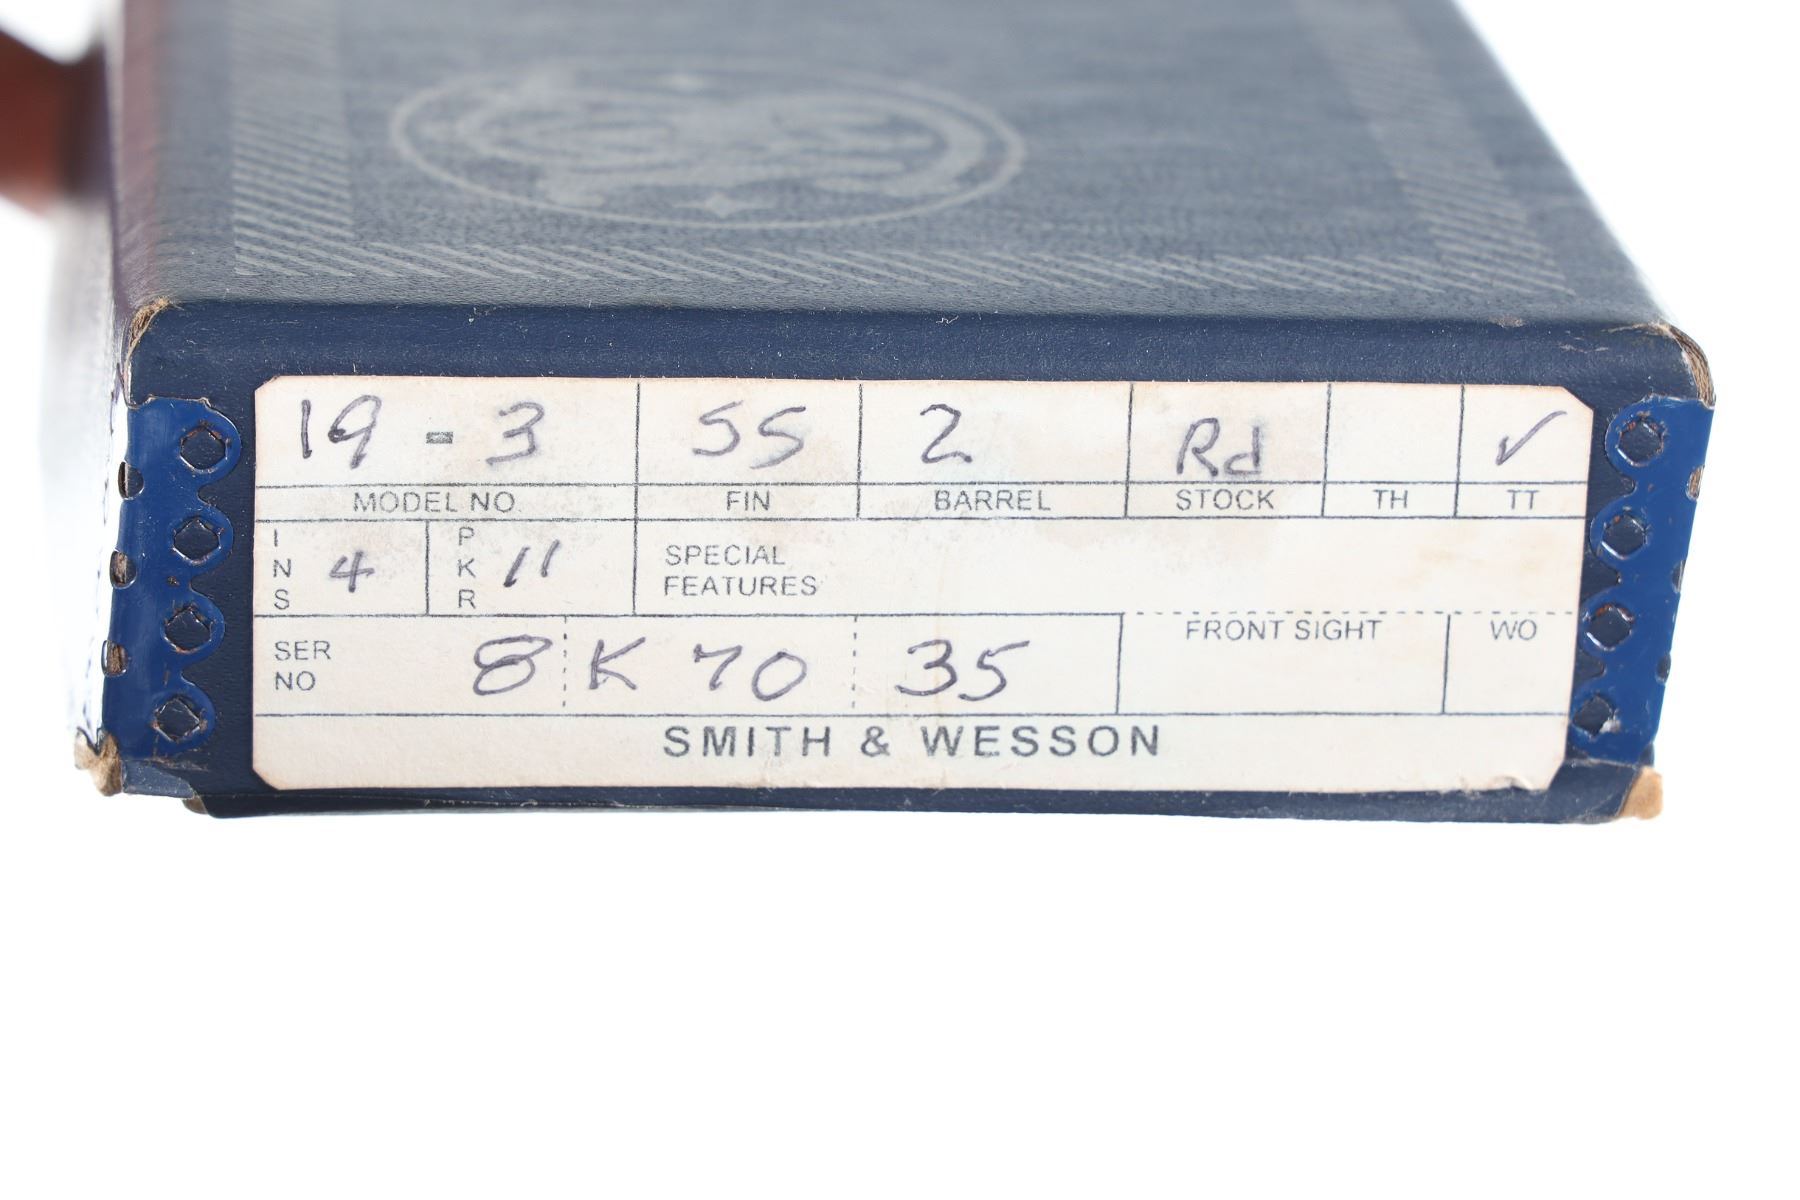 19 - 3 SS 2 Rd ✓
MODEL NO. FIN BARREL STOCK TH TT
INS 4 PKR 11 SPECIAL FEATURES
SER NO 8 K 70 35 FRONT SIGHT WO
SMITH & WESSON